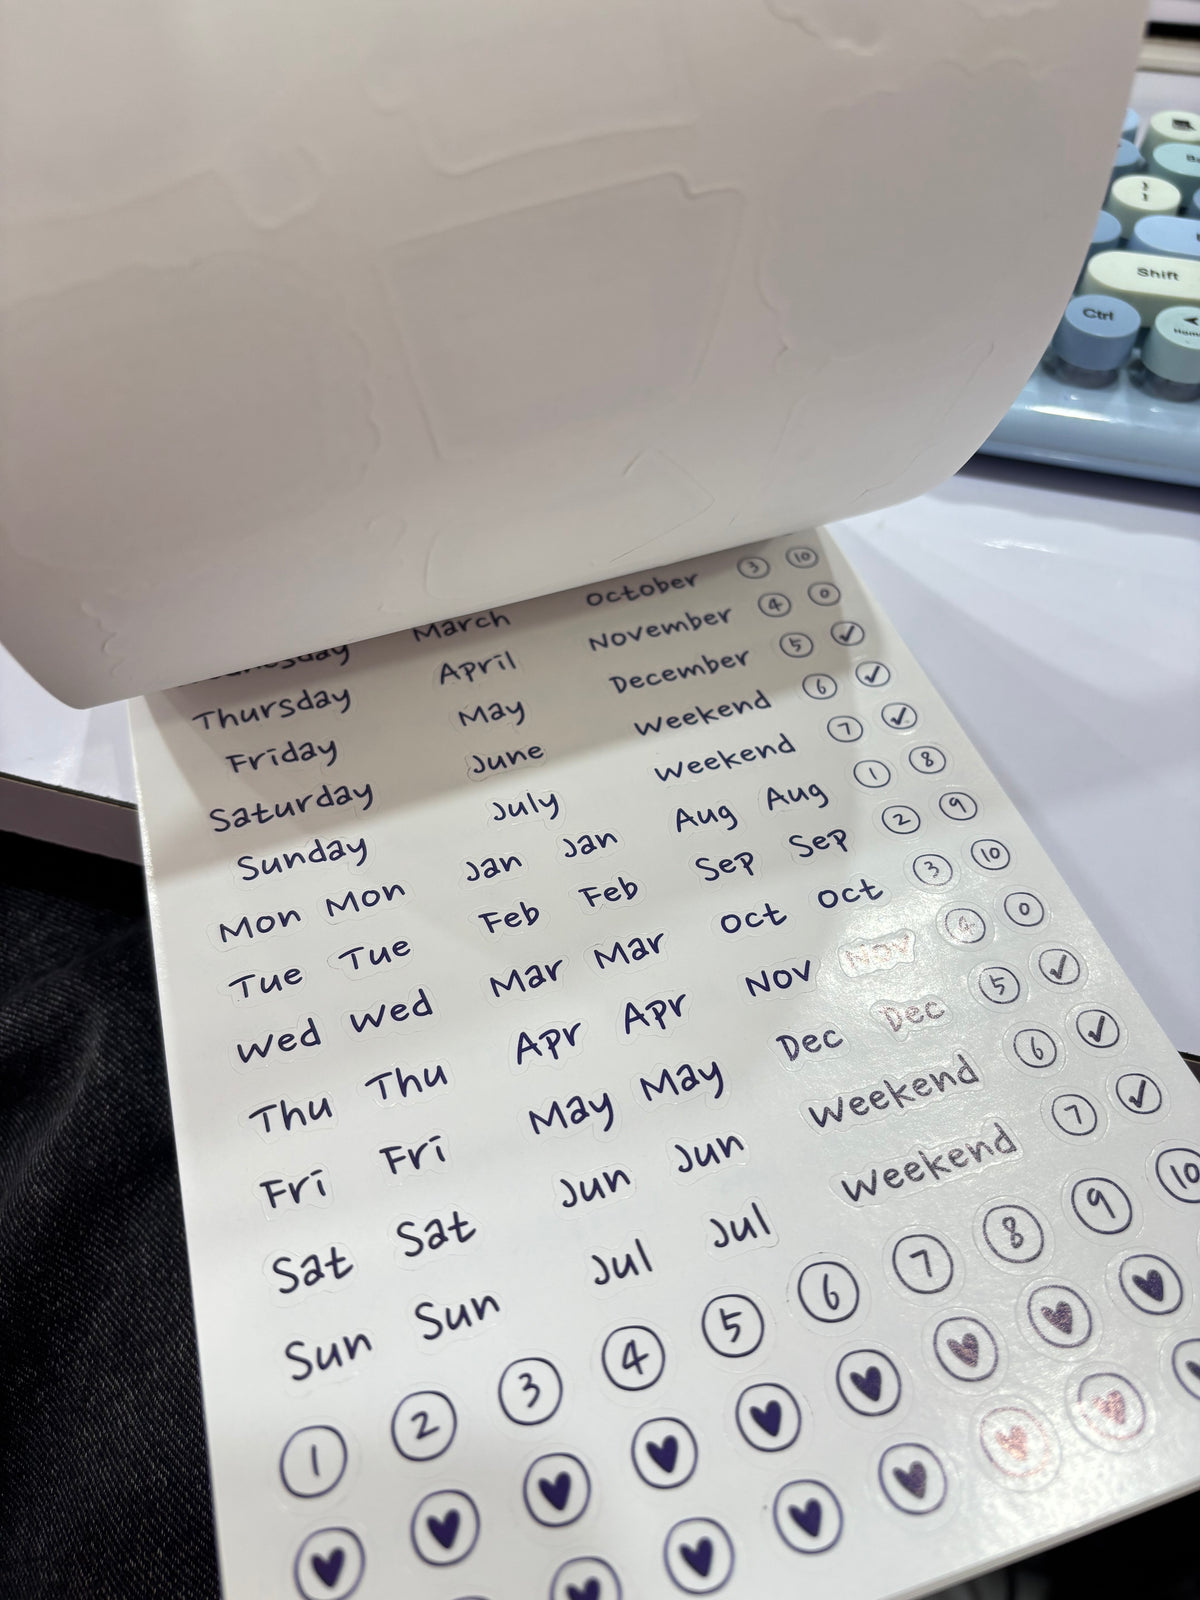 Shift
Ctrl
October 3 10
March November 4 0
Thursday April December 5 ✓
Friday May weekend 6 ✓
Saturday June weekend 7 ✓
Sunday July Aug Aug 1 8
Mon Mon Jan Jan Sep Sep 2 9
Tue Tue Feb Feb Oct Oct 3 10
Wed Wed Mar Mar Nov Nov 4 0
Thu Thu Apr Apr Dec Dec 5 ✓
Fri Fri May May weekend 6 ✓
Sat Sat Jun Jun weekend 7 ✓
Sun Sun Jul Jul
1 2 3 4 5 6 7 8 9 10